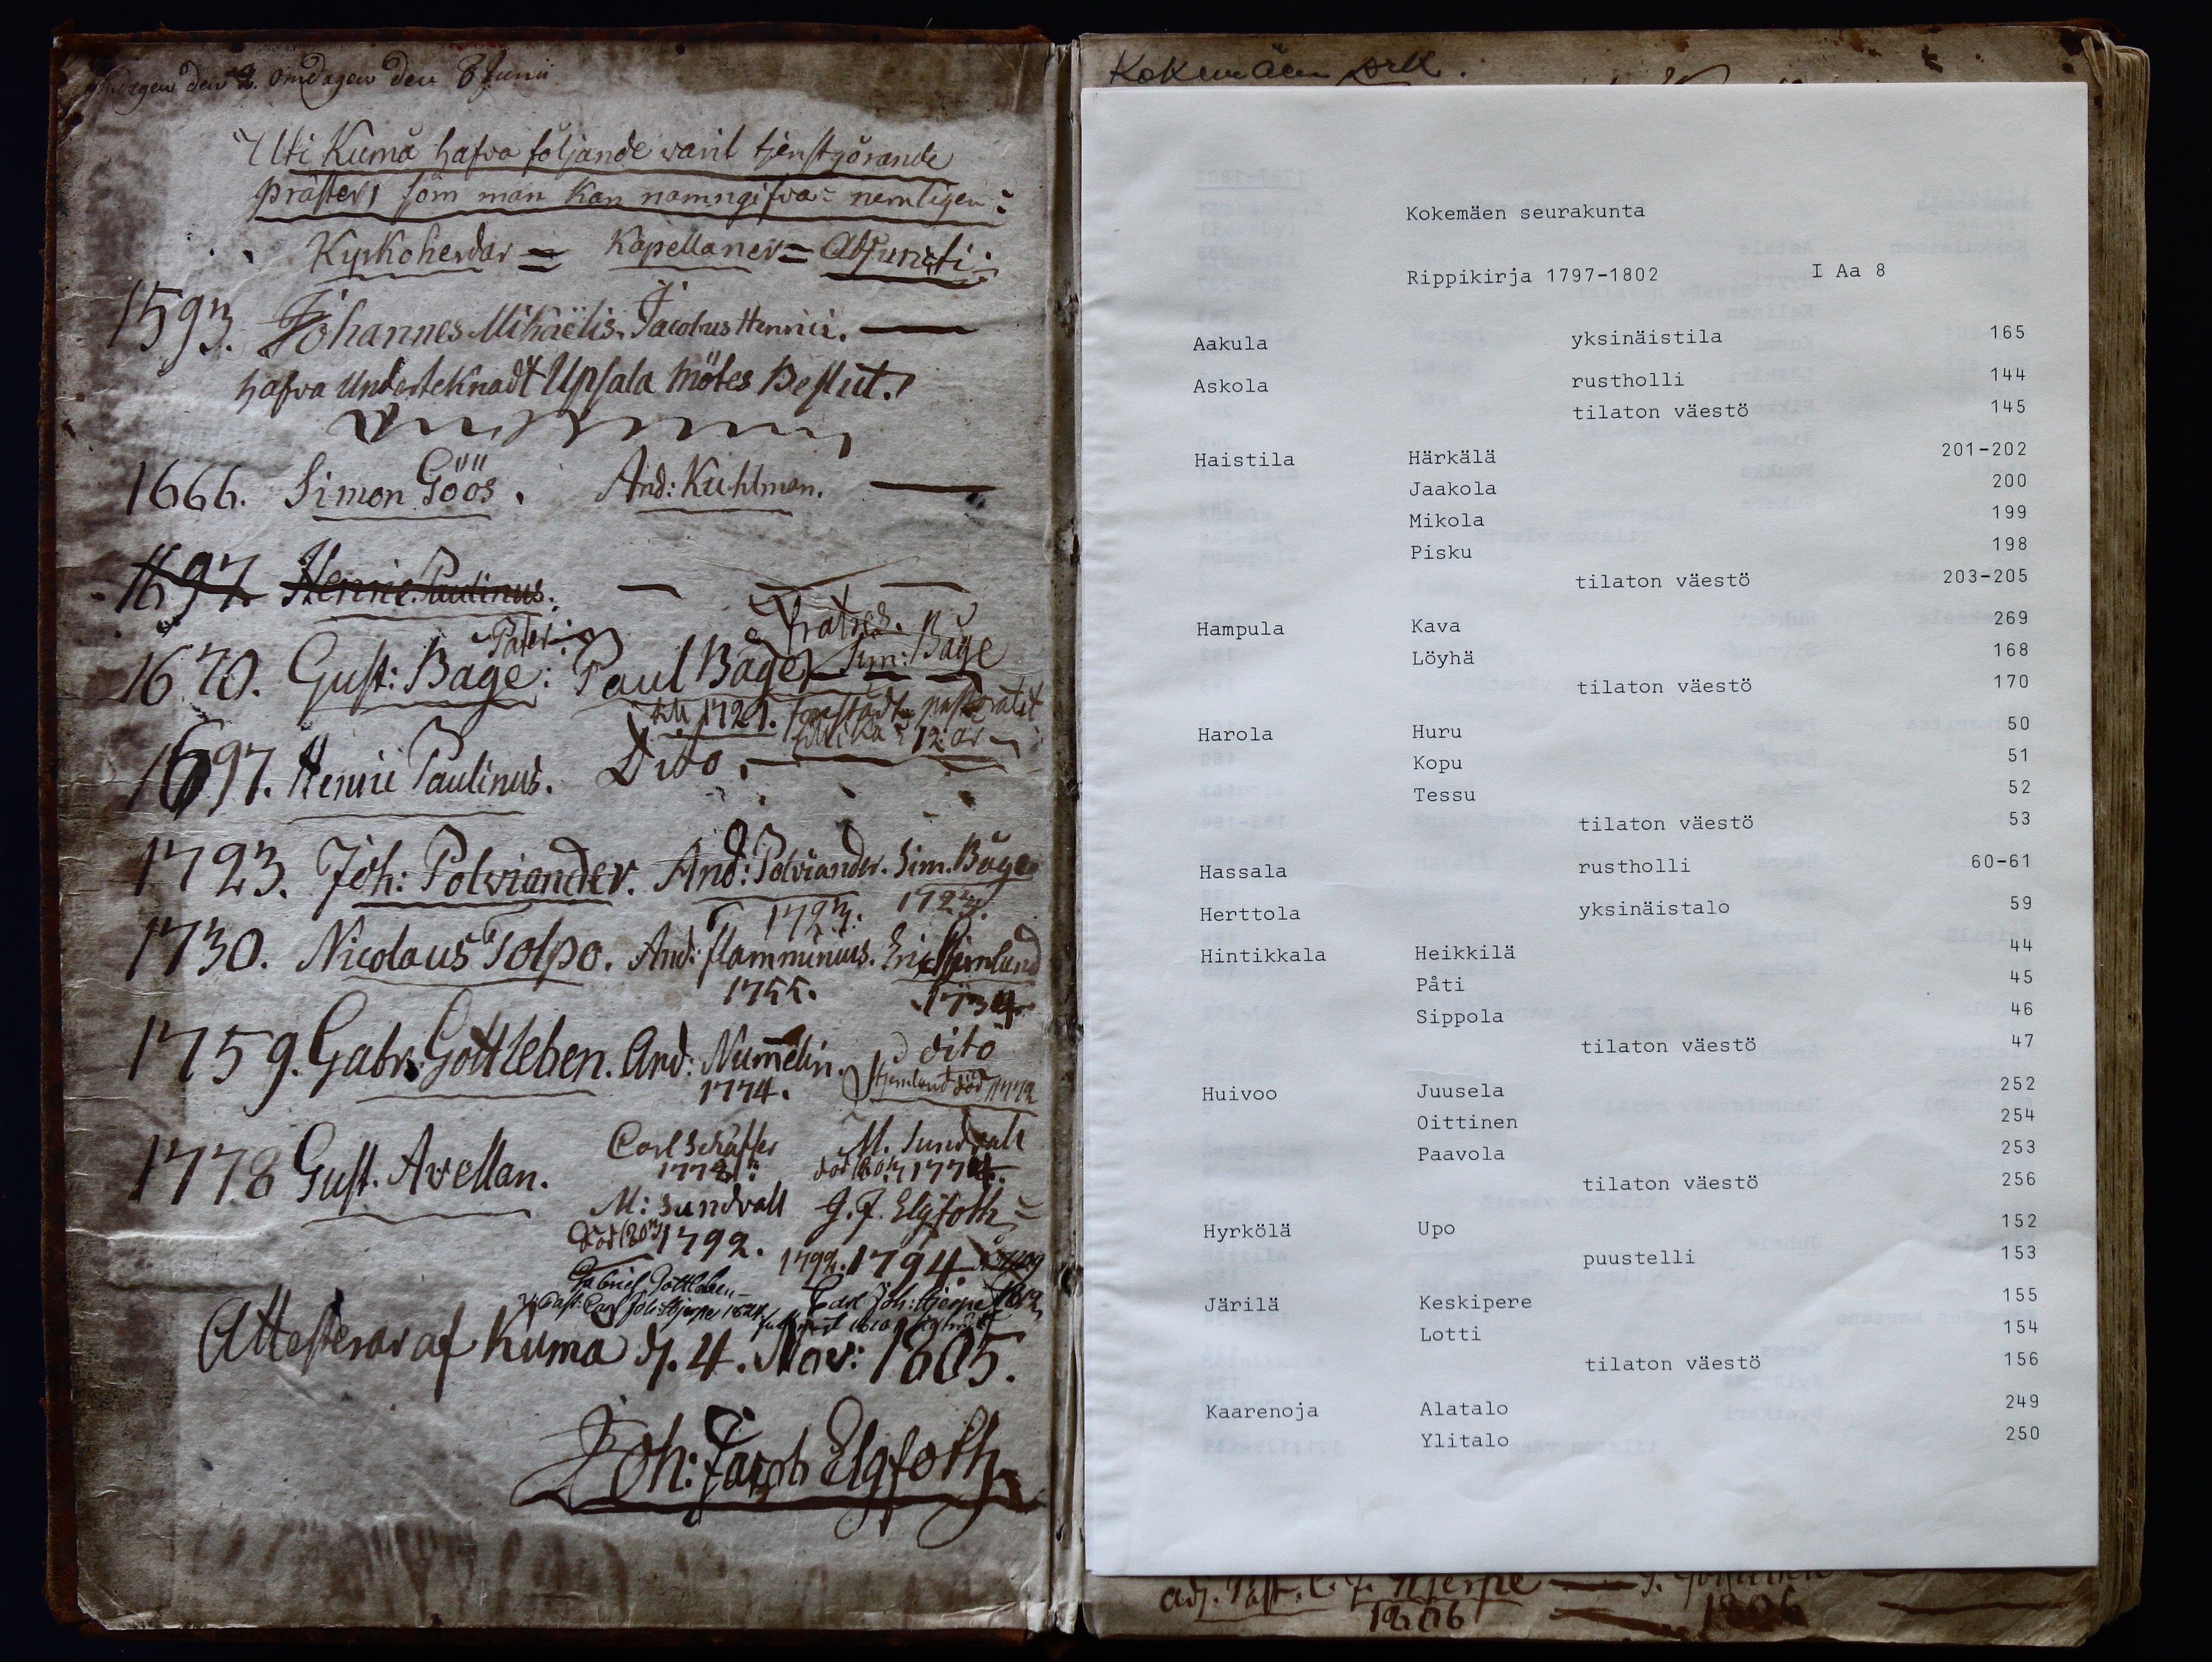 Omdagen den 8 Junii
Uti Kumå hafva följande varit tjenstgörande
präster, som man kan namngifva: nemligen:
Kyrkoherdar = Kapellaner = Adjuncti:
1593. Johannes Mihaëlis. Jacobus Henrici.
hafva Underteknadt Upsala mötes Beslut.
1666. Simon Göös. And: Kuhlman.
1697. Henric Paulinus.
Pater: Fratres.
1670. Gust: Bage: Paul Båge Sim: Båge
till 1721.
1697. Henric Paulinus. Dito.
12 år
1723. Joh: Polviander. And: Polviander. Sim. Båge
1723. 1723.
1730. Nicolaus Tolpo. And: flamminius. Eric
1755. 1734
1759. Gabr. Gottleben. And: Numelin. dito
1774. död 1772
1778 Gust. Avellan. Carl Schäffer M. Sundvall
M: Sundvall G. F. Elgfoth
1792. 1792. 1794
Gabriel Gottleben
Carl Joh: Hjerpe
Attesterar af Kumo d. 4. Nov: 1805.
Joh: Jacob Elgfoth
Kokemäen srk.
Kokemäen seurakunta
Rippikirja 1797-1802 I Aa 8
Aakula yksinäistila 165
Askola rustholli 144
tilaton väestö 145
Haistila Härkälä 201-202
Jaakola 200
Mikola 199
Pisku 198
tilaton väestö 203-205
Hampula Kava 269
Löyhä 168
tilaton väestö 170
Harola Huru 50
Kopu 51
Tessu 52
tilaton väestö 53
Hassala rustholli 60-61
Herttola yksinäistalo 59
Hintikkala Heikkilä 44
Påti 45
Sippola 46
tilaton väestö 47
Huivoo Juusela 252
Oittinen 254
Paavola 253
tilaton väestö 256
Hyrkölä Upo 152
puustelli 153
Järilä Keskipere 155
Lotti 154
tilaton väestö 156
Kaarenoja Alatalo 249
Ylitalo 250
adj. Past. C. J. Hjerpe
1806 1806